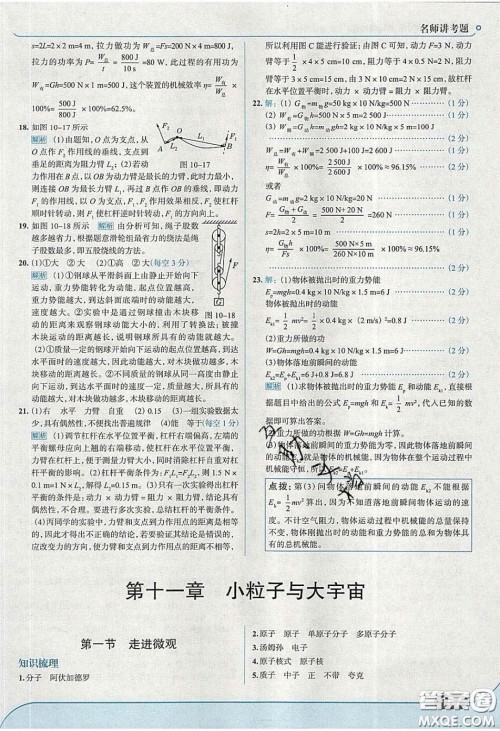 名师讲考题
s=2L=2×2 m=4 m, 拉力做功为 W总=Fs=200 N×4 m=800 J,
拉力的功率为 P=W总/t=800 J/10 s=80 W, 此时的有用功为
W有=Gh=500 N×1 m=500 J, 这个装置的机械效率 η=W有/W总×
100%=500 J/800 J×100%=62.5%。
18. 如图 10-17 所示
解析 (1)由题知, O 点为支点, 从
O 点作 F1 作用线的垂线, 支点到
垂足的距离为阻力臂 L2; (2)若动
图 10-17
力作用在 B 点, 以 OB 为动力臂是最长的力臂, 此时力最小,
则目前连接 OB 即为最大的动力臂 L1, 再过 B 点作 OB 的垂
线, 即动力 F1 的作用线, F2 在 A 点作用效果相反, F2 使杠杆
顺时针转动, 则 F1 使杠杆逆时针转动, F1 的方向向上。
19. 如图 10-18 所示 解析 由分析可知, 绳子股数
越多越省力, 根据题意滑轮组最省力的绕法是绳
子股数最多, 即五股绕线的方法。
图 10-18
20. (1)①大 ②大 (2)①高 ②大 (每空 3 分)
解析 (1)①钢球从平滑斜面上由静止开始向下运
动, 重力势能转化为动能。起点越高, 具有的重力
势能越大, 到达斜面底端时的动能越大,
速度越大。
②实验中是通过钢球撞击木块移动
的距离来观察钢球动能大小的, 被撞
木块运动的距离越远, 说明钢球所具有的动能就越大。
(2)①质量一定的钢球开始向下运动的起点位置越高, 到达
水平面时的速度越大, 因此动能越大, 对木块做功越多, 木块
移动距离越大。②不同质量的钢球从同一高度由静止开始
向下运动, 达到水平面时的速度相同, 质量越大动能越大, 对
木块做功越多, 木块移动的距离越大。
21. (1)右 水平 力臂 首 (2) 0.15 (3)一组实验数据太
少, 具有偶然性, 不便找出普遍规律 (4)能 等于(每空 1 分)
解析 (1)调节杠杆在水平位置平衡, 杠杆右端偏高, 左端的
平衡螺母应向上翘的右端移动, 使杠杆在水平位置平衡, 便
于测量力臂大小, 同时消除杠杆自重对杠杆
平衡的影响。(2)杠杆的平衡条件为: F1L1=F2L2, 则 1.5 N×
0.1 m=1 N×L2, L2=0.15 m。(3)只有一次实验得出杠杆
平衡的条件是: 动力×动力臂=阻力×阻力臂。结论具有
偶然性, 不合理。要进行多次实验, 总结杠杆的平衡条件。
(4)丙同学的实验中, 力臂和支点到力作用点的距离是相等
的, 若要验证其结论是错误的, 力臂和支点到力作用点的距离
应不等, 应改变力的方向, 使力臂和支点到力的作用点的距离不相等。
所以利用图 C 能进行验证; 由图 C 可知, 动力 F=3 N, 动力
臂等于 4×2.5 cm=10 cm, 阻力等于 4×0.5 N=2 N, 阻力
臂等于 15 cm, 由于 3 N×10 cm=2 N×15 cm, 故杠杆平衡
时, 动力×动力臂=阻力×阻力臂。
22. 解: (1) G物=m物g=50 kg×10 N/kg=500 N (1 分)
(2) W有=G物h=500 N×5 m=2 500 J (1 分)
W总=W有+W额=2 600 J (2 分)
η=W有/W总×100%=2 500 J/2 600 J×100%≈96.15% (2 分)
或者
G动=m动g=2 kg×10 N/kg=20 N (1 分)
F=(G物+G动)/2=(500 N+20 N)/2=260 N (1 分)
s=2h=2×5 m=10 m (1 分)
η=G物h/Fs×100%=500 N×5 m/260 N×10 m×100%≈96.15%
(2 分)
23. 解: (1)物体被抛出时的重力势能
Ep=mgh=0.4 kg×10 N/kg×1.5 m=6 J (2 分)
物体被抛出时的动能
Ek1=1/2mv²=1/2×0.4 kg×(2 m/s)²=0.8 J (2 分)
(2)重力所做的功
W=Gh=mgh=0.4 kg×10 N/kg×1.5 m=6 J (2 分)
(3)物体落地前瞬间的动能
Ek2=Ep+Ek1=6 J+0.8 J=6.8 J (2 分)
解析 (1)求物体被抛出时的重力势能 Ep 和动能 Ek, 直接根
据题目中给出的公式 Ep=mgh 和 Ek=1/2mv², 代入已知的数
据即可算出答案。
(2)重力所做的功根据 W=Gh=mgh 计算。
(3)物体落地前瞬间的重力势能为零, 因为物体落地前瞬间
的高度为 0。因为不计空气阻力, 所以物体在整个运动过程中
机械能守恒, 所以 Ek2=Ep+Ek1。
点拨: 第(3)问物体落地前瞬间的动能 Ek2 不能根据
Ek=1/2mv² 算出, 因为不知道落地前瞬间物体运动的速
度。不计空气阻力, 物体运动过程中机械能的总量保持
不变, 物体刚抛出时的动能和重力势能的总和为物体具
有的总机械能。
第十一章 小粒子与大宇宙
第一节 走进微观
知识梳理
1. 分子 阿伏加德罗
2. 原子 原子 单原子分子 多原子分子
3. 汤姆孙 电子
4. 原子核式 原子核
5. 质子 中子 正 不带 夸克
答案圈
MXQE.COM